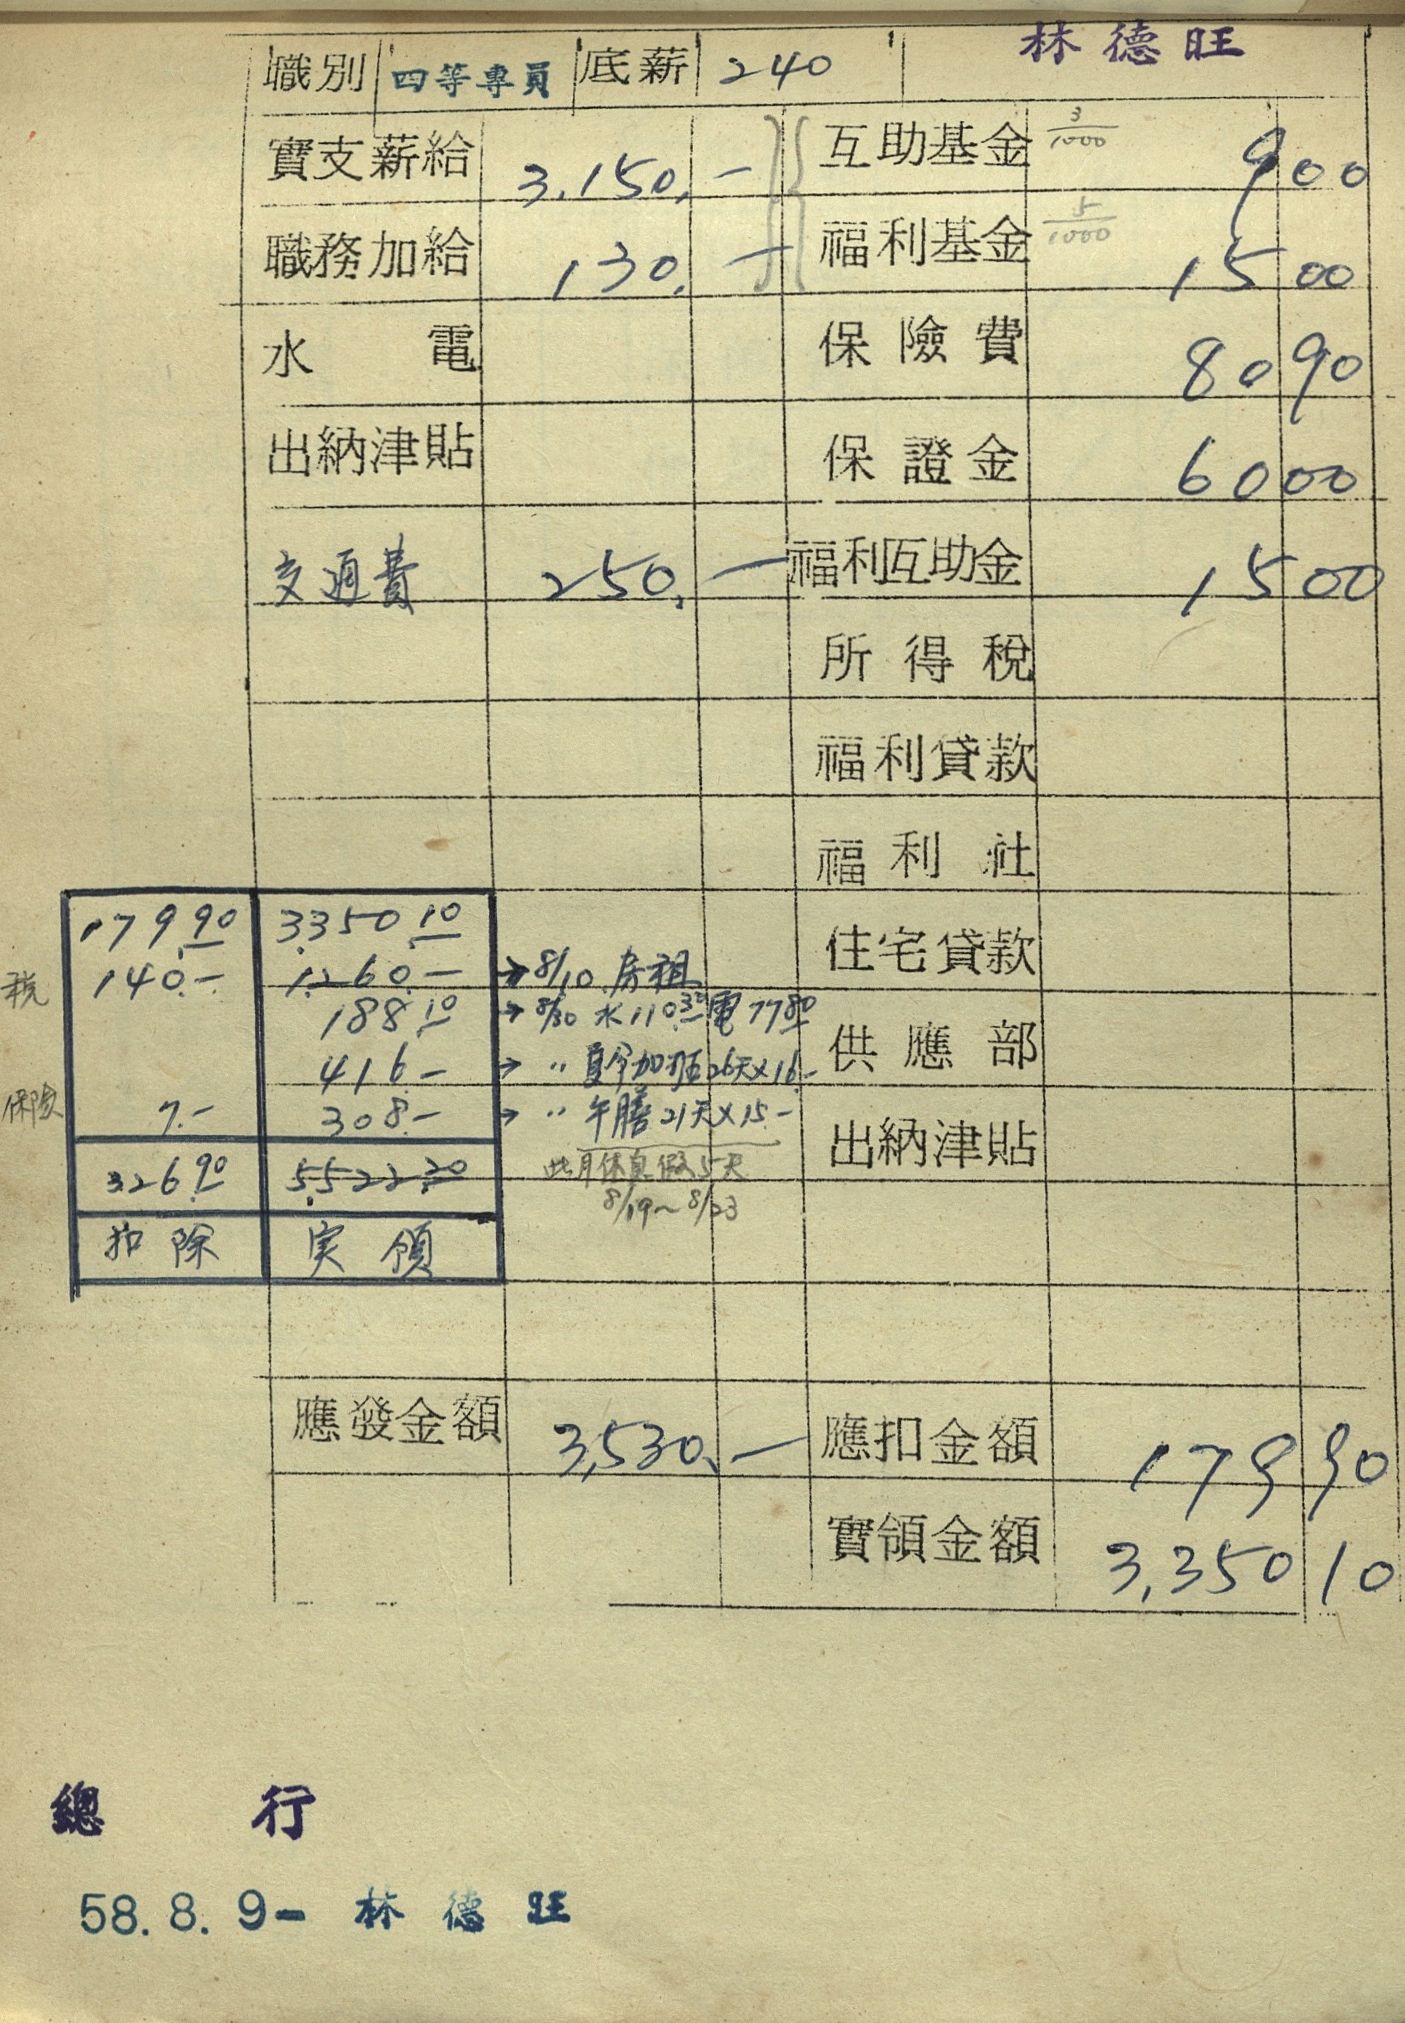 林德旺
職別 四等專員 底薪 240
實支薪給 3,150.— 互助基金 3/1000 9 00
職務加給 130.— 福利基金 5/1000 15 00
水電 保險費 80 90
出納津貼 保證金 60 00
交通費 250.— 福利互助金 15 00
所得稅
福利貸款
福利社
179.90 3,350.10 住宅貸款
稅 140.— 1,260.— → 8/10 房租
188.10 → 8/30 水110.30 電77.80 供應部
416.— → 〃 夏令加班26天×16.—
保險 7.— 308.— → 〃 午膳21天×15.— 出納津貼
326.90 5,522.20 此月休息假5天
8/19~8/23
扣除 実領
應發金額 3,530.— 應扣金額 179 90
實領金額 3,350 10
總行
58.8.9- 林德旺